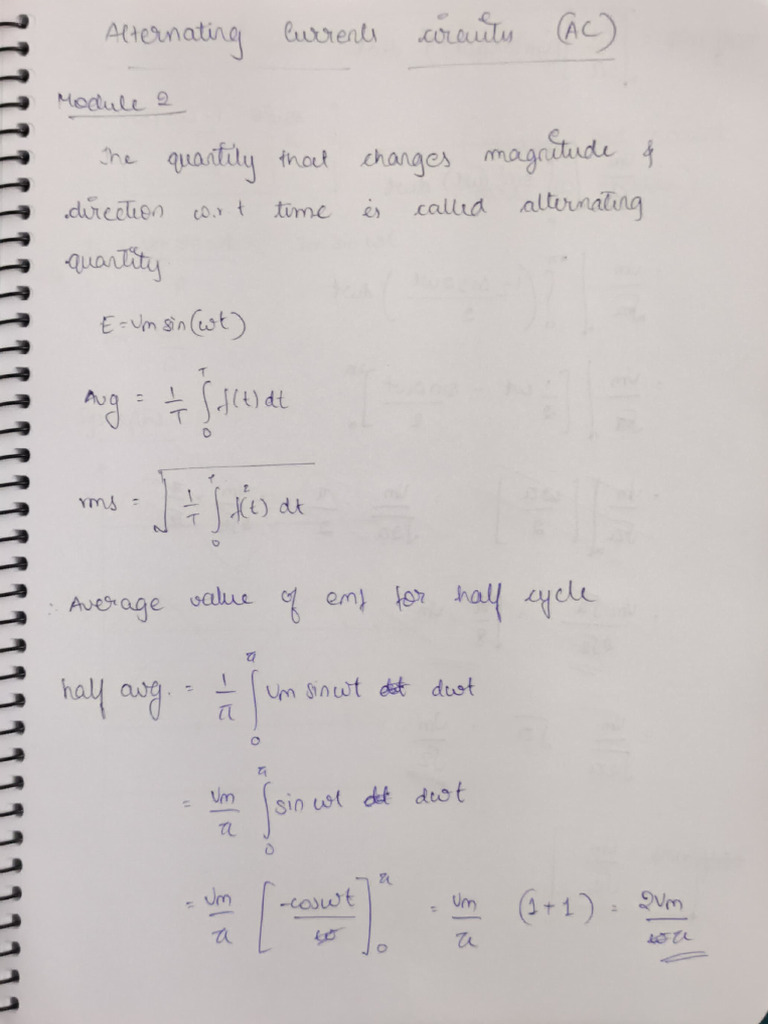 Alternating Currents circuits (AC)
Module 2
The quantity that changes magnitude &
direction w.r.t time is called alternating
quantity
E = Vm sin(ωt)
Avg = 1/T ∫₀ᵀ f(t) dt
rms = √(1/T ∫₀ᵀ f²(t) dt)
∴ Average value of emf for half cycle
half avg. = 1/π ∫₀^π Vm sinωt dωt
= Vm/π ∫₀^π sin ωt dωt
= Vm/π [-cosωt]₀^π = Vm/π (1+1) = 2Vm/π